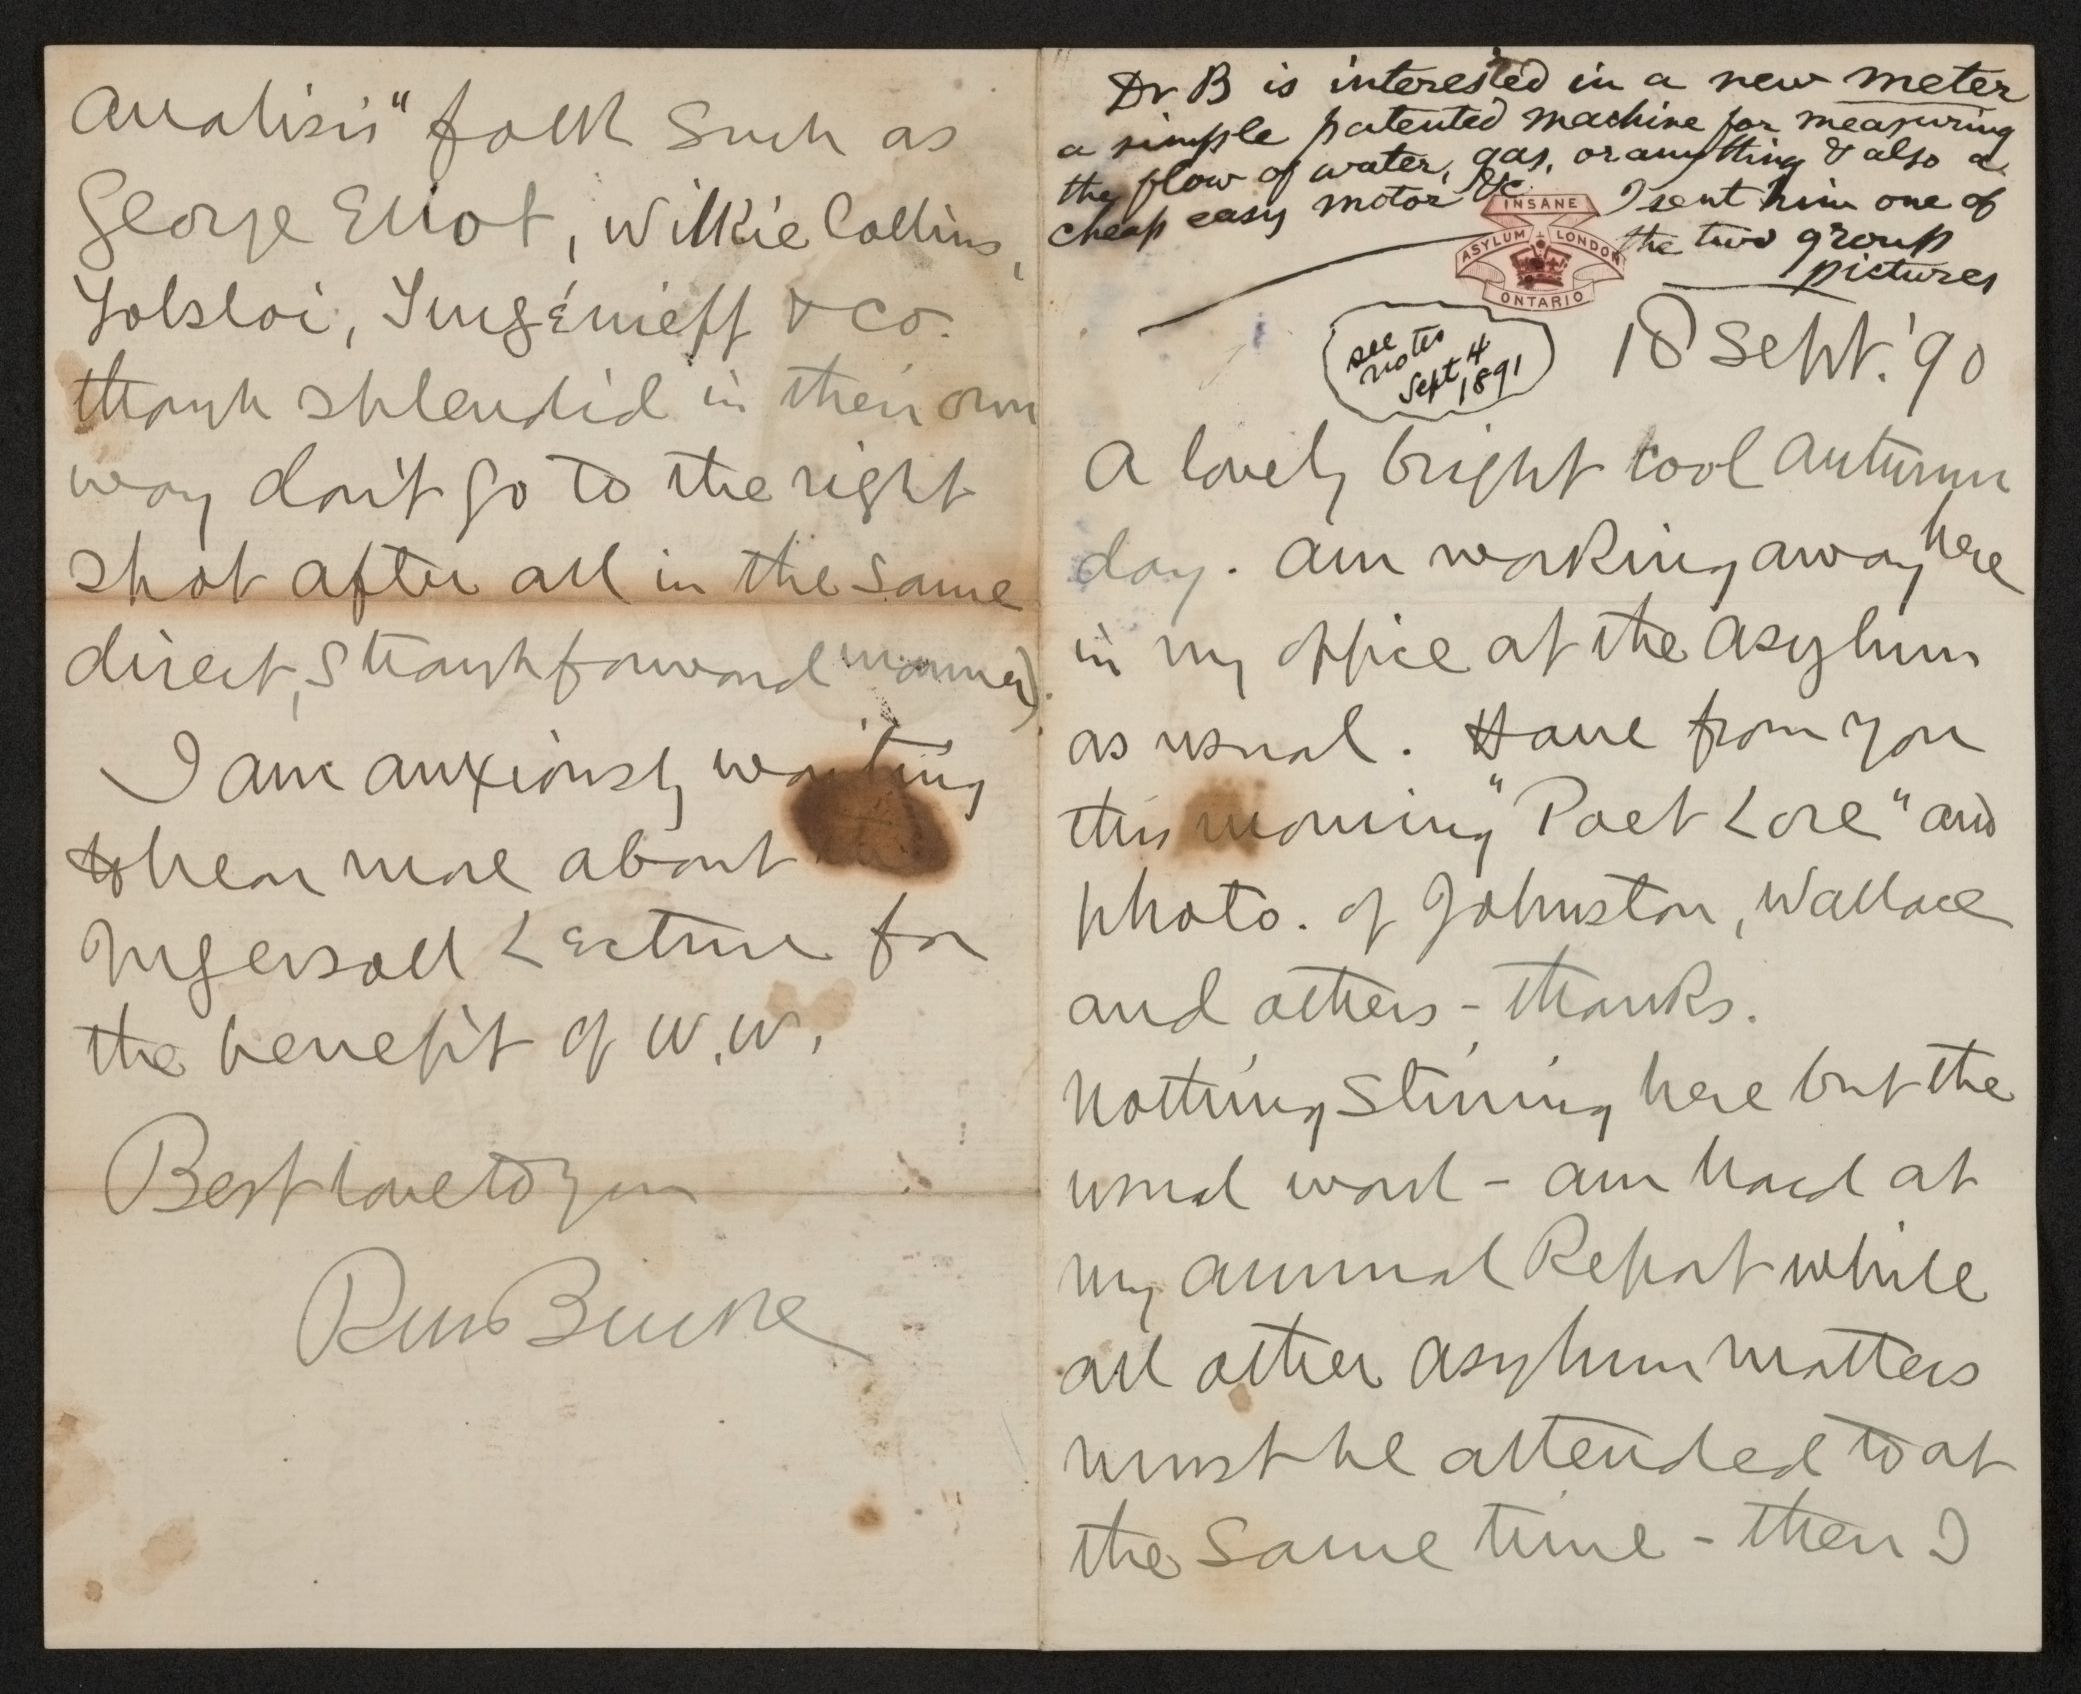 Dr B is interested in a new meter
a simple patented machine for measuring
the flow of water, gas, or anything & also a
cheap easy motor &c. I sent him one of
the two group
pictures
INSANE
ASYLUM LONDON
ONTARIO
see
notes
Sept 4
1891
18 Sept. '90
A lovely bright cool autumn
day. Am working away here
in my office at the asylum
as usual. Have from you
this morning "Poet Lore" and
photo. of Johnston, Wallace
and others - thanks.
Nothing stirring here but the
usual work - am hard at
my annual Report while
all other asylum matters
must be attended to at
the same time - then I
analisis" folk such as
George Eliot, Wilkie Collins,
Tolstoi, Turgénieff & co.
though splendid in their own
way don't go to the right
shot after all in the same
direct, straightforward manner).
I am anxiously waiting
to hear more about the
Ingersoll Lecture for
the benefit of W.W.
Best love to you
RM Bucke